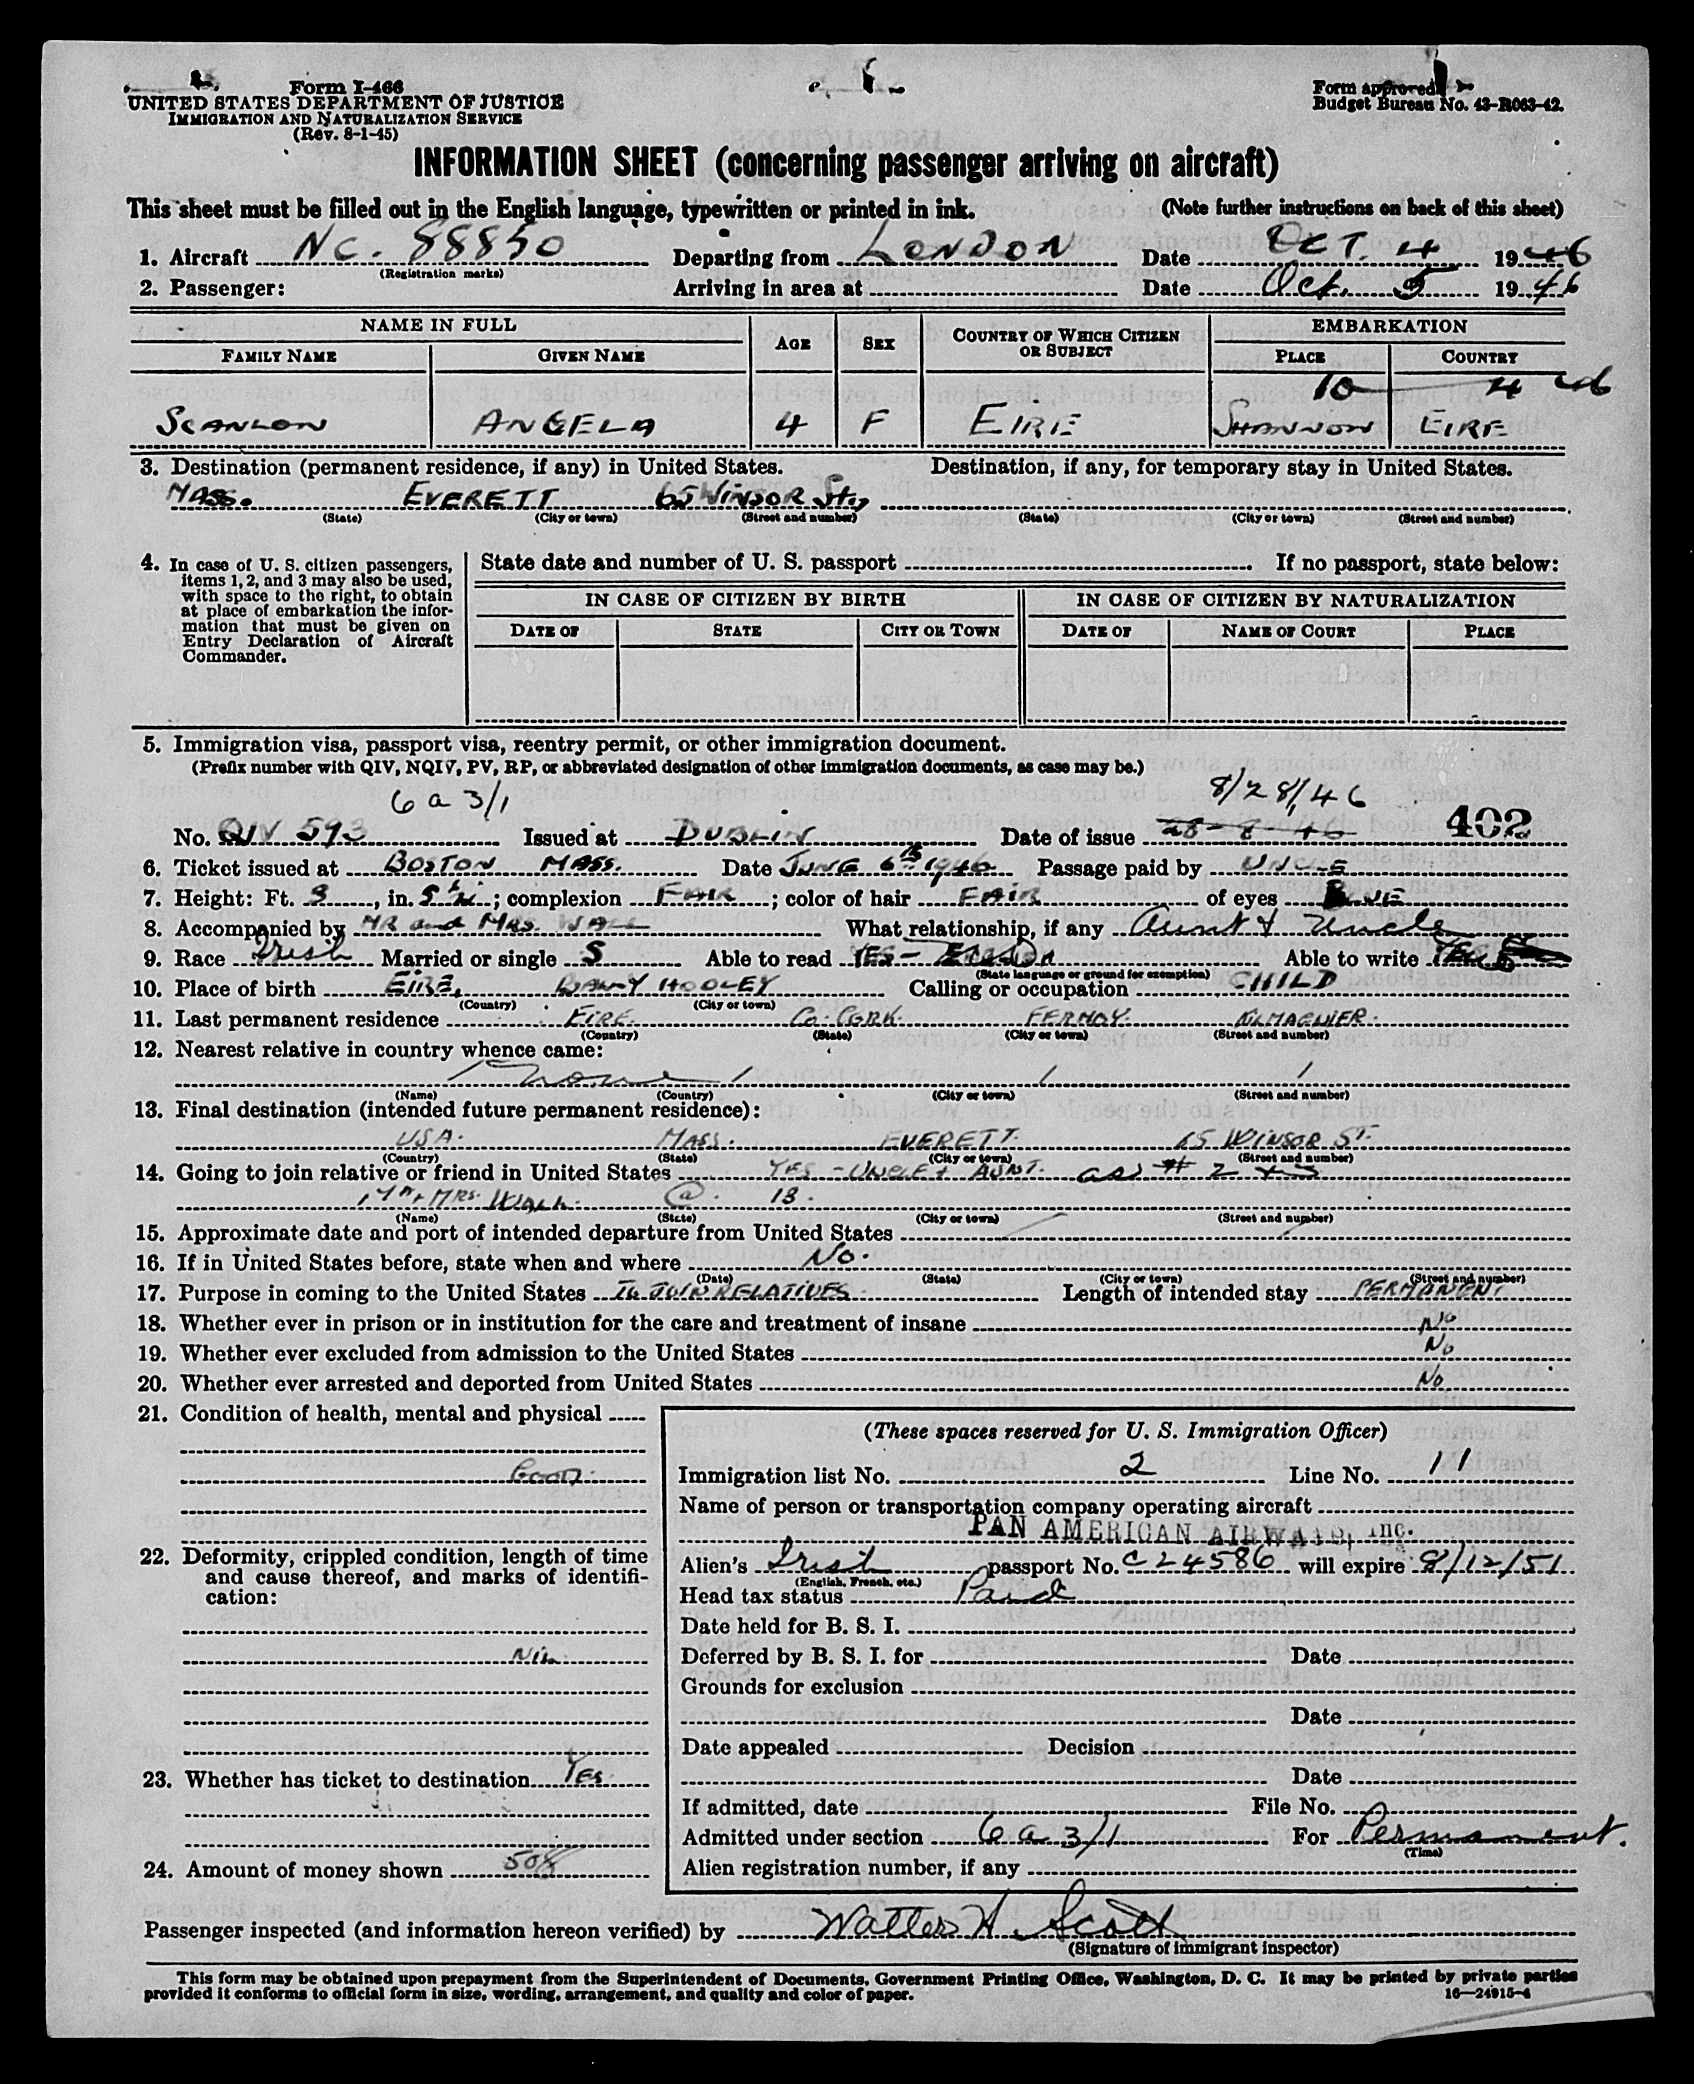 Form I-466
UNITED STATES DEPARTMENT OF JUSTICE
IMMIGRATION AND NATURALIZATION SERVICE
(Rev. 8-1-45)
Form approved
Budget Bureau No. 43-R063-42.
INFORMATION SHEET (concerning passenger arriving on aircraft)
This sheet must be filled out in the English language, typewritten or printed in ink. (Note further instructions on back of this sheet)
1. Aircraft NC. 88850 Departing from LONDON Date OCT. 4 1946
(Registration marks)
2. Passenger: Arriving in area at Date Oct. 5 1946
NAME IN FULL AGE SEX COUNTRY OF WHICH CITIZEN OR SUBJECT EMBARKATION
FAMILY NAME GIVEN NAME PLACE COUNTRY
10 4 46
SCANLON ANGELA 4 F EIRE SHANNON EIRE
3. Destination (permanent residence, if any) in United States. Destination, if any, for temporary stay in United States.
MASS. EVERETT 65 WINSOR St.,
(State) (City or town) (Street and number) (State) (City or town) (Street and number)
4. In case of U. S. citizen passengers, items 1, 2, and 3 may also be used, with space to the right, to obtain at place of embarkation the information that must be given on Entry Declaration of Aircraft Commander.
State date and number of U. S. passport If no passport, state below:
IN CASE OF CITIZEN BY BIRTH IN CASE OF CITIZEN BY NATURALIZATION
DATE OF STATE CITY OR TOWN DATE OF NAME OF COURT PLACE
5. Immigration visa, passport visa, reentry permit, or other immigration document.
(Prefix number with QIV, NQIV, PV, RP, or abbreviated designation of other immigration documents, as case may be.)
6 a 3/1 8/28/46 402
No. QIV 593 Issued at DUBLIN Date of issue 28-8-46
6. Ticket issued at BOSTON MASS. Date JUNE 6th 1946 Passage paid by UNCLE
7. Height: Ft. 3, in. 5½; complexion FAIR; color of hair FAIR of eyes BLUE
8. Accompanied by MR and MRS. WALL What relationship, if any Aunt & Uncle
9. Race Irish Married or single S Able to read YES - Able to write YES
(State language or ground for exemption)
10. Place of birth EIRE, BALLYHOOLEY Calling or occupation CHILD
(Country) (City or town)
11. Last permanent residence EIRE. Co. CORK. FERMOY. KILMAGNIER.
(Country) (State) (City or town) (Street and number)
12. Nearest relative in country whence came:
none
(Name) (Country) (City or town) (Street and number)
13. Final destination (intended future permanent residence):
USA. MASS. EVERETT. 65 WINSOR ST.
(Country) (State) (City or town) (Street and number)
14. Going to join relative or friend in United States YES - UNCLE + AUNT. as # 2 + 3
Mr + MRS. WALL. @. 13.
(Name) (State) (City or town) (Street and number)
15. Approximate date and port of intended departure from United States
16. If in United States before, state when and where No.
(Date) (State) (City or town) (Street and number)
17. Purpose in coming to the United States TO JOIN RELATIVES Length of intended stay PERMANENT
18. Whether ever in prison or in institution for the care and treatment of insane No
19. Whether ever excluded from admission to the United States No
20. Whether ever arrested and deported from United States No
21. Condition of health, mental and physical
Good.
22. Deformity, crippled condition, length of time and cause thereof, and marks of identification:
Nil.
23. Whether has ticket to destination Yes.
24. Amount of money shown 50$
(These spaces reserved for U. S. Immigration Officer)
Immigration list No. 2 Line No. 11
Name of person or transportation company operating aircraft
PAN AMERICAN AIRWAYS, Inc.
Alien's Irish passport No. C24586 will expire 8/12/51
(English, French, etc.)
Head tax status Paid
Date held for B. S. I.
Deferred by B. S. I. for Date
Grounds for exclusion
Date
Date appealed Decision
Date
If admitted, date File No.
Admitted under section 6 a 3/1 For Permanent.
(Time)
Alien registration number, if any
Passenger inspected (and information hereon verified) by Walter H. Scott
(Signature of immigrant inspector)
This form may be obtained upon prepayment from the Superintendent of Documents, Government Printing Office, Washington, D. C. It may be printed by private parties
provided it conforms to official form in size, wording, arrangement, and quality and color of paper. 16—24915-4